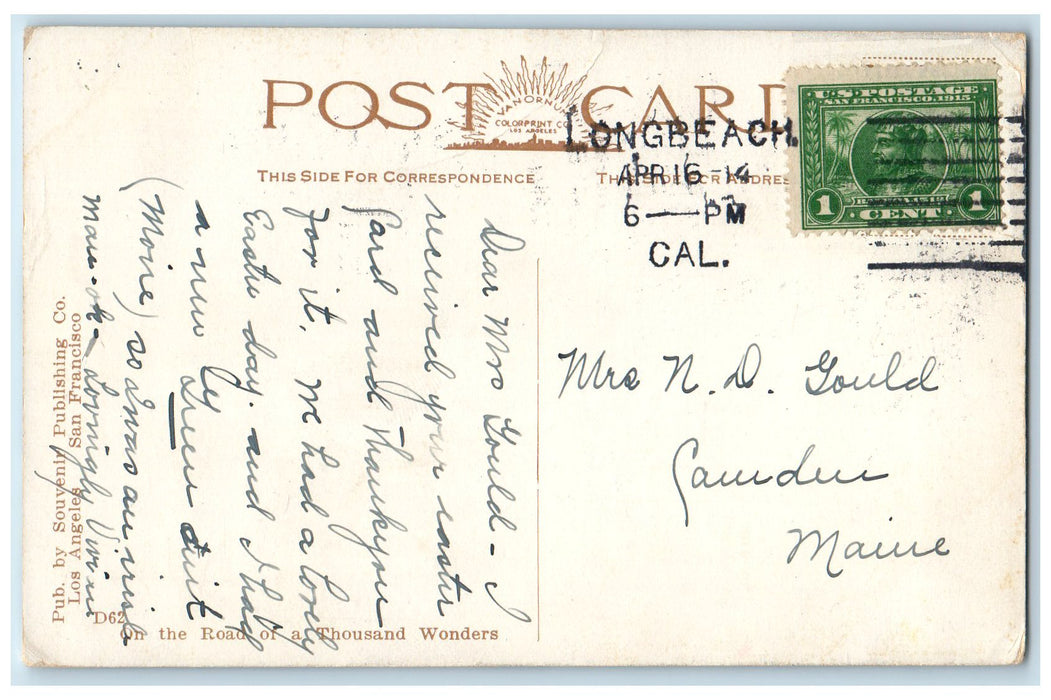 POST CARD
VAN ORNUM
COLORPRINT CO.
LOS ANGELES
THIS SIDE FOR CORRESPONDENCE
THIS SIDE FOR ADDRESS
LONGBEACH.
APR 16 - 14
6 — PM
CAL.
U.S. POSTAGE
SAN FRANCISCO, 1915
1 CENT 1
Dear Mrs Gould - I
received your easter
card and thank you
for it. We had a lovely
Easter day. and I had
a new Green suit
(Moire) so I was an irish
man. ok - Lovingly
Mrs N. D. Gould
Camden
Maine
Pub. by Souvenir Publishing Co.
Los Angeles San Francisco
D62
On the Road of a Thousand Wonders